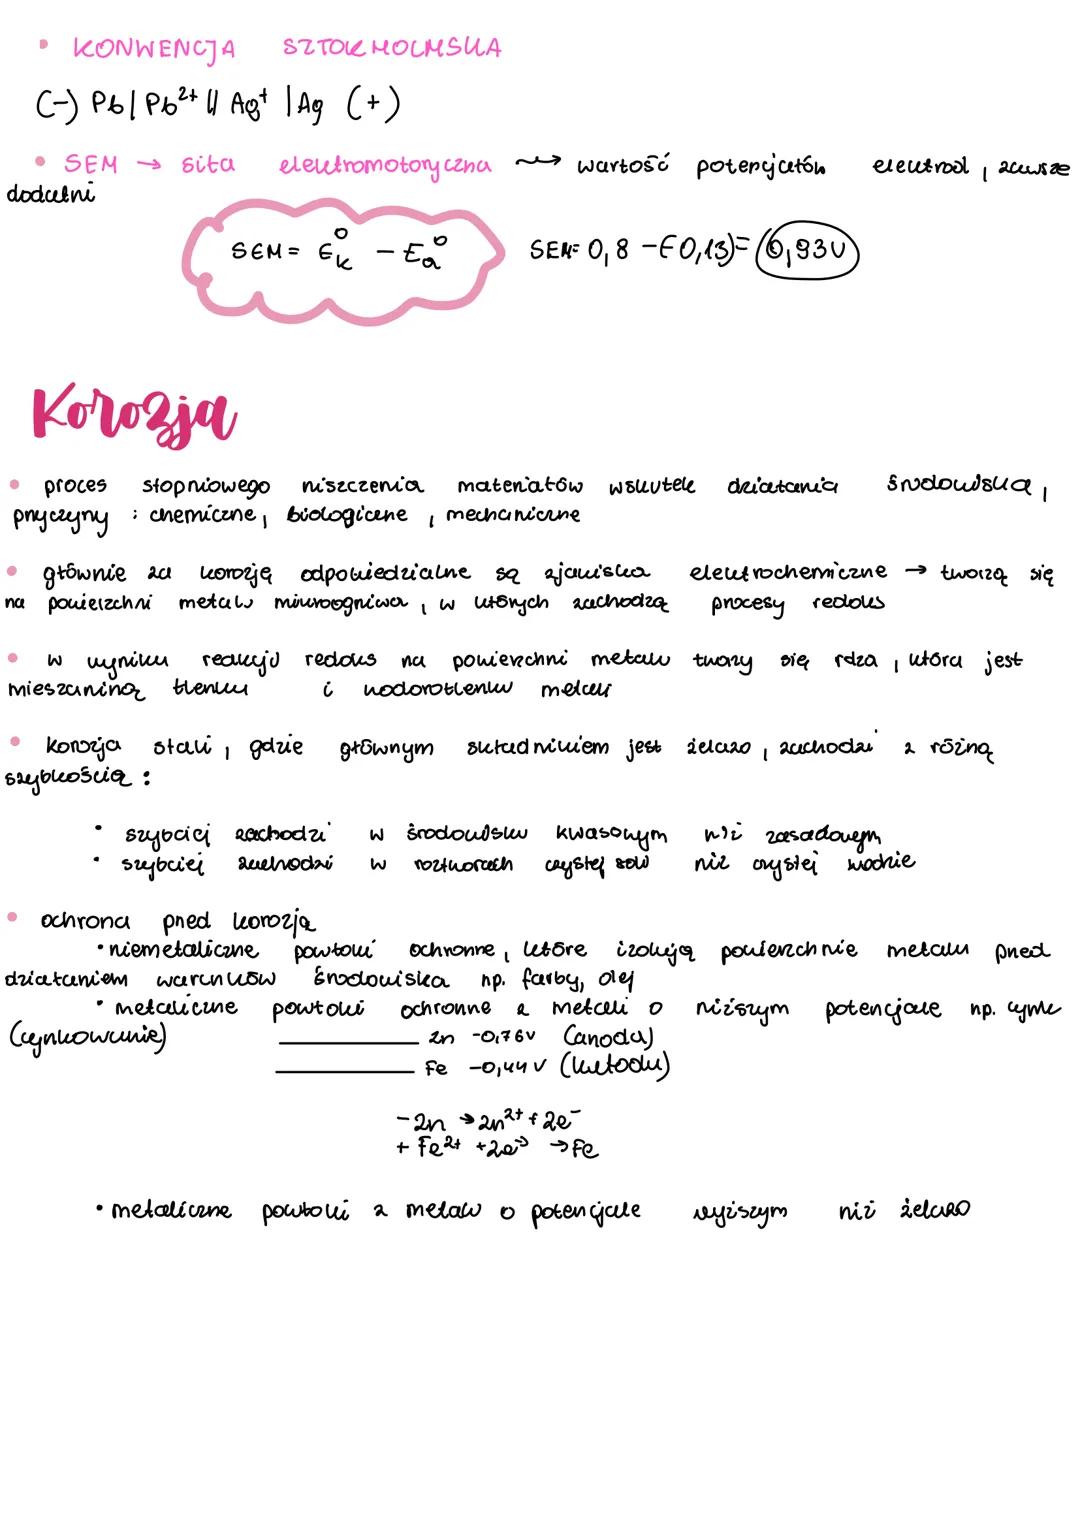 • KONWENCJA SZTOKHOLMSKA
(-) Pb | Pb²⁺ || Ag⁺ | Ag (+)
• SEM → siła elektromotoryczna ⇝ wartość potencjałów elektrod, zawsze
dodatni
SEM = E⁰ₖ - E⁰ₐ SEM = 0,8 - (-0,13) = 0,93V
Korozja
• proces stopniowego niszczenia materiałów wskutek działania środowiska,
przyczyny : chemiczne, biologiczne, mechaniczne
• głównie za korozję odpowiedzialne są zjawiska elektrochemiczne → tworzą się
na powierzchni metalu mikroogniwa, w których zachodzą procesy redoks
• w wyniku reakcji redoks na powierzchni metalu tworzy się rdza, która jest
mieszaniną tlenku i wodorotlenku metali
• korozja stali, gdzie głównym składnikiem jest żelazo, zachodzi z różną
szybkością :
• szybciej zachodzi w środowisku kwasowym niż zasadowym
• szybciej zachodzi w roztworach czystej soli niż czystej wodzie
• ochrona przed korozją
• niemetaliczne powłoki ochronne, które izolują powierzchnie metalu przed
działaniem warunków środowiska np. farby, olej
• metaliczne powłoki ochronne z metali o niższym potencjale np. cynk
(cynkowanie) Zn -0,76V (anoda)
Fe -0,44V (katoda)
- Zn → Zn²⁺ + 2e⁻
+ Fe²⁺ + 2e⁻ → Fe
• metaliczne powłoki z metalu o potencjale wyższym niż żelazo